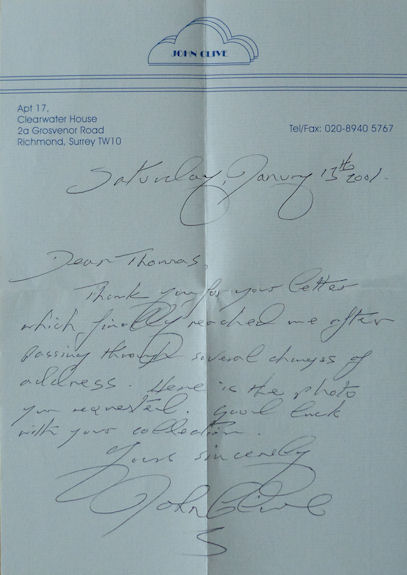 JOHN CLIVE
Apt 17,
Clearwater House
2a Grosvenor Road
Richmond, Surrey TW10
Tel/Fax: 020-8940 5767
Saturday, January 13th 2001.
Dear Thomas,
Thank you for your letter
which finally reached me after
passing through several changes of
address. Here is the photo
you requested. Good luck
with your collection.
Yours sincerely
John Clive